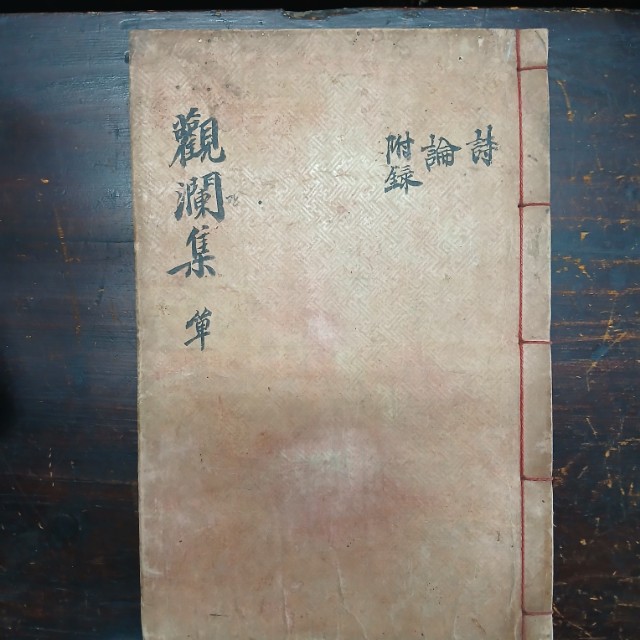 詩
論
附錄
觀瀾集 單